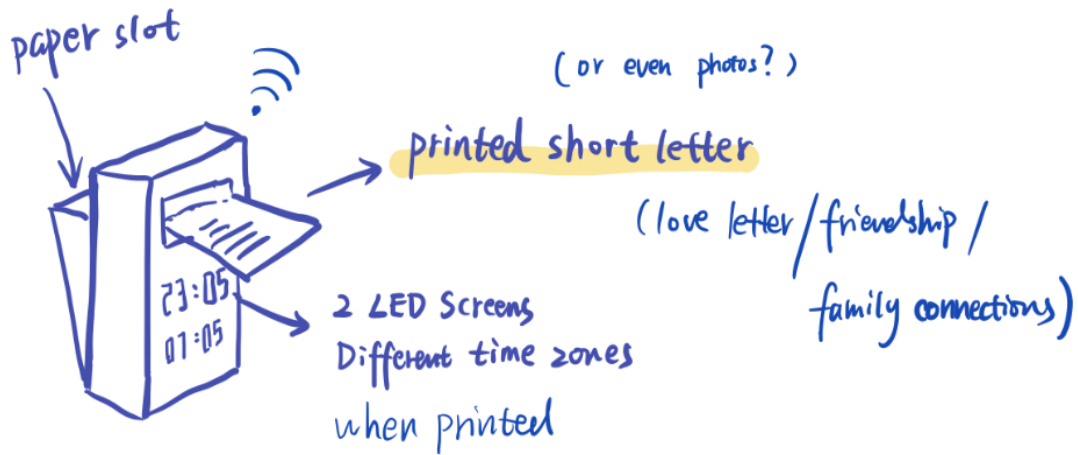 paper slot
(or even photos?)
printed short letter
(love letter/friendship/
family connections)
23:05
07:05
2 LED Screens
Different time zones
when printed